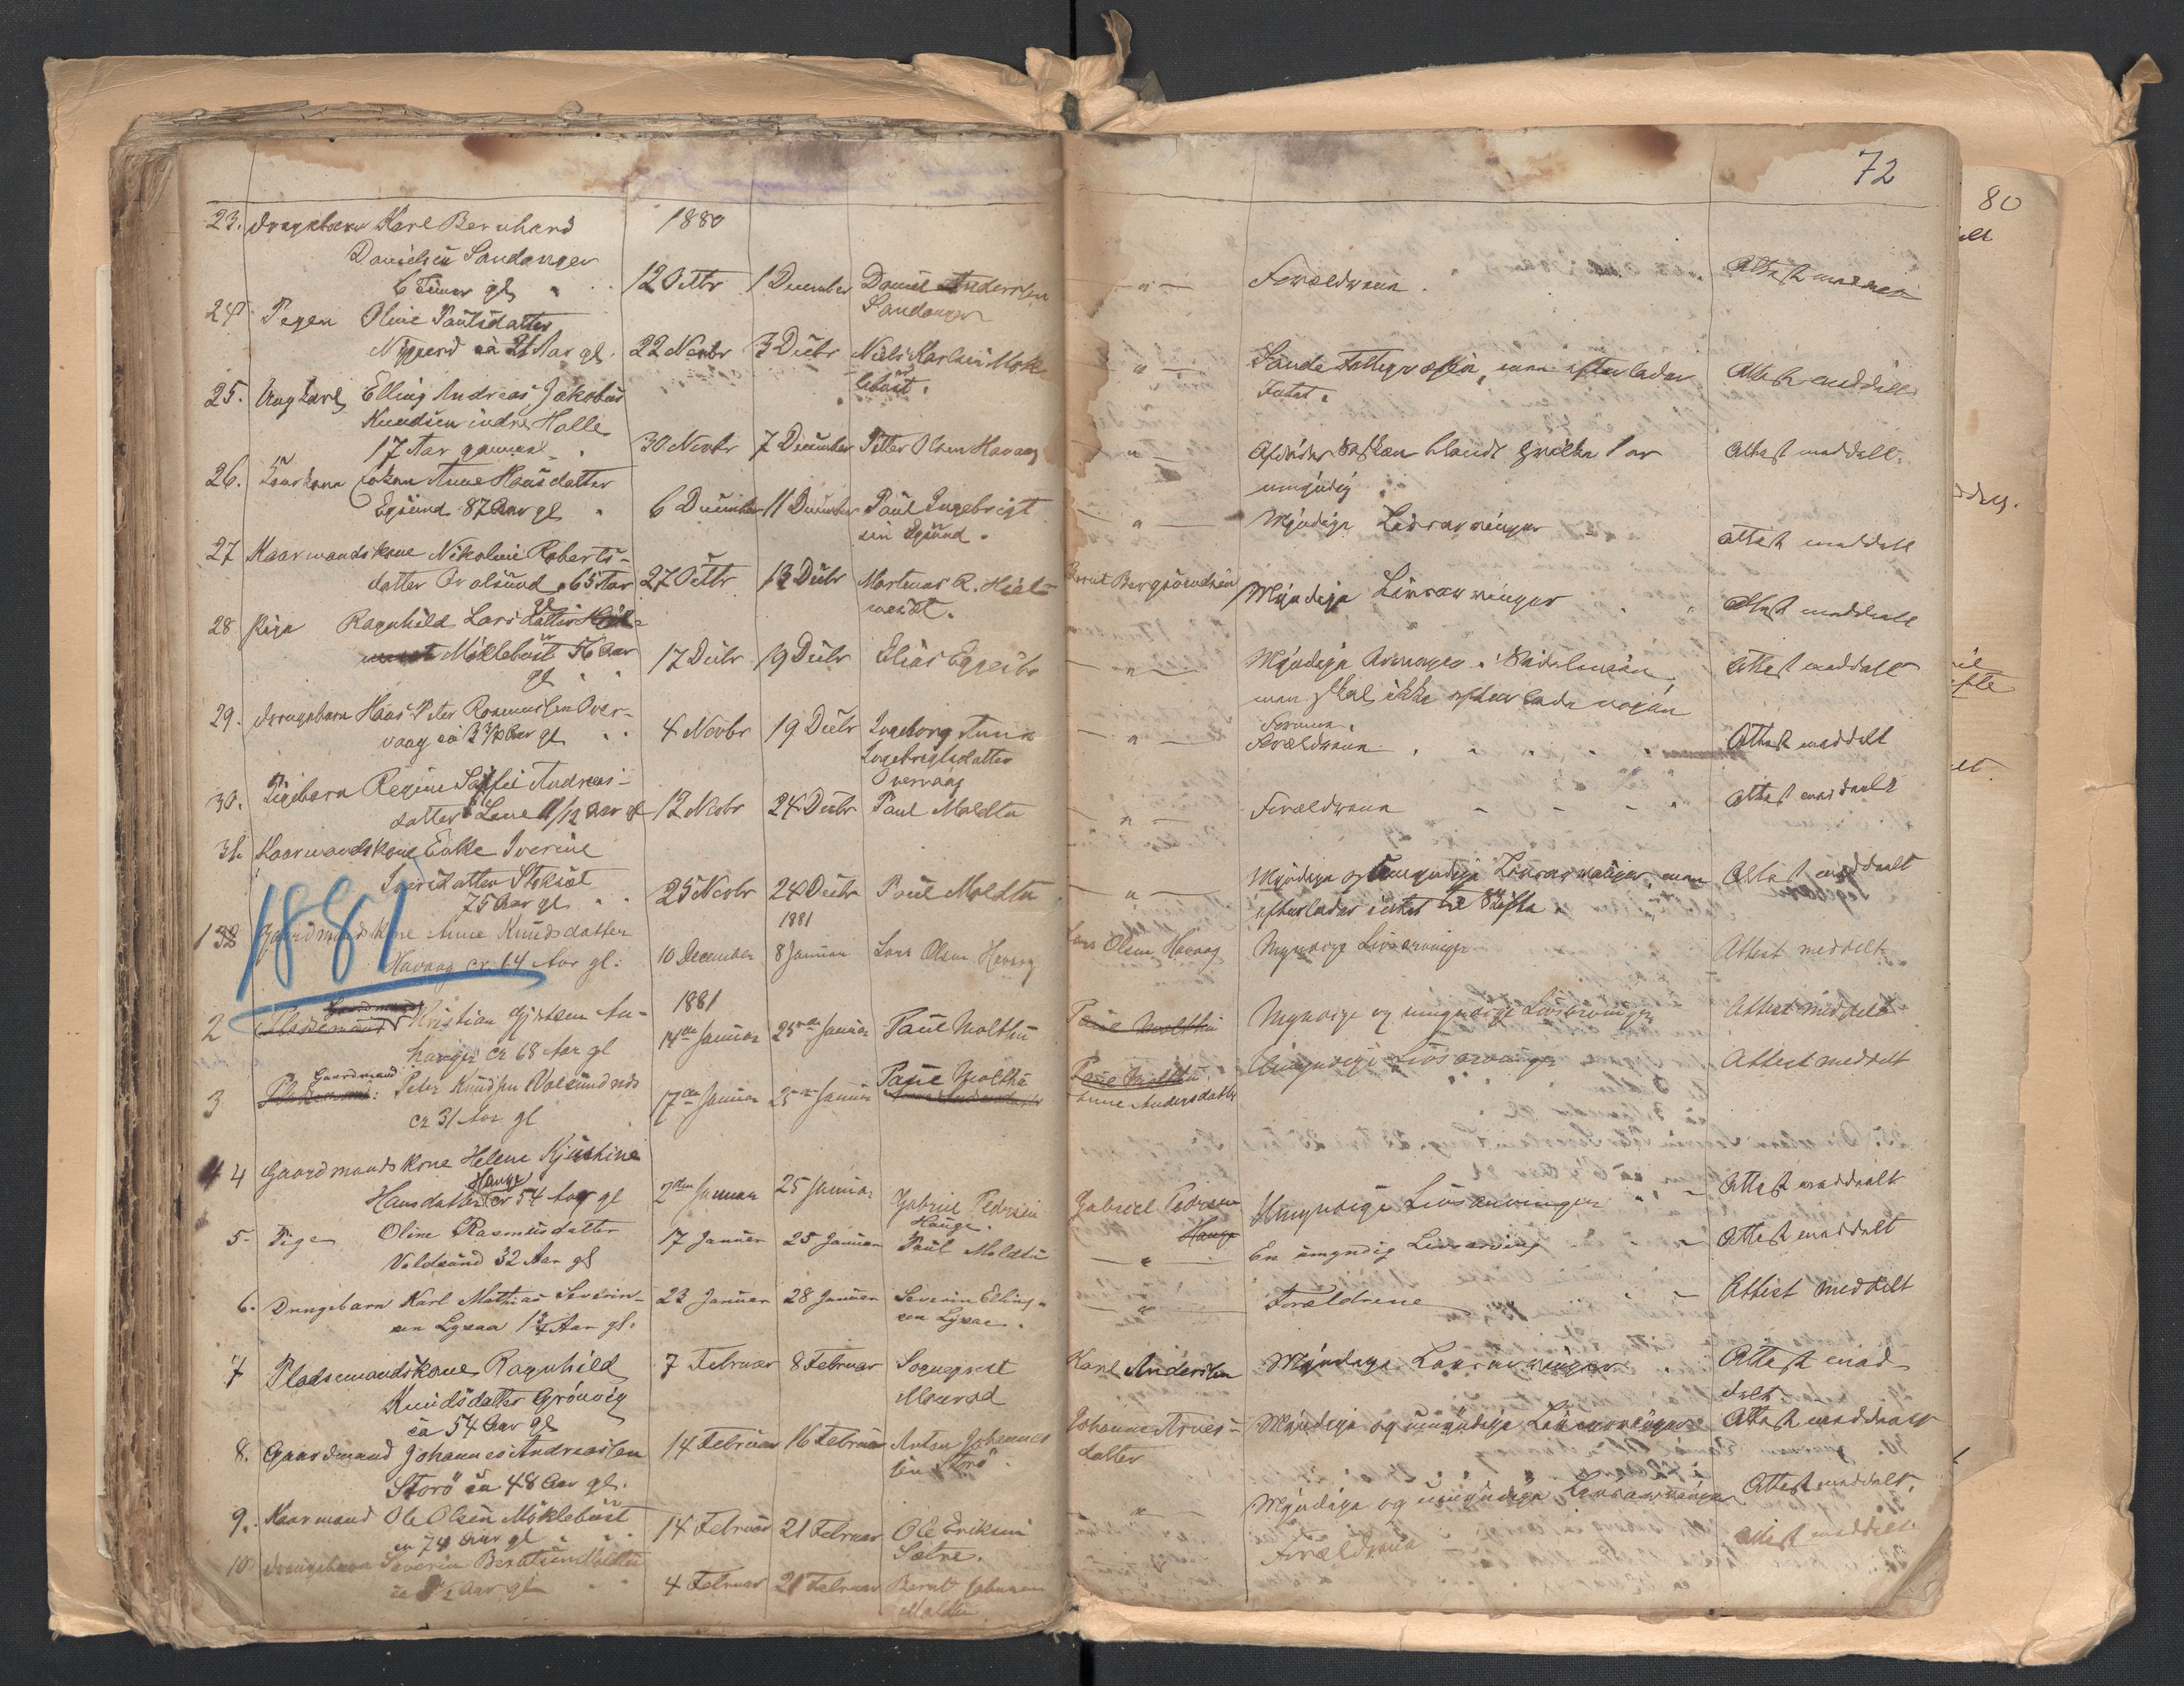 72
80
23. Drengebarn Karl Bernhard 1880
Danielsen Sandanger
6 Timer gl 12 Octbr 1 December Daniel Andersen — " — Forældrene Attest meddelt
Sandanger
24. Pigen Oline Paulsdatter
Nygjerd ca 21 Aar gl. 22 Novbr 3 Decbr Niels Karlsen Mök- — " — Sande Fattigvæsen, men efterlader Attest meddelt
lebust. Intet.
25. Ungkarl Elling Andreas Jakobus
Knudsen indre Halle
17 Aar gammel 30 Novbr 7 December Petter Olsen Havaag — " — Söskende blandt hvilke 1 er Attest meddelt.
umyndig
26. Enke Anne Hansdatter
Egsund 87 Aar gl 6 December 11 December Paul Ingebrigt- — " — Myndige Livsarvinger attest meddelt
sen Egsund.
27 Kaarmandskone Nikoline Roberts-
datter Voldsund 65 Aar 27 Octbr 13 Decbr Martinus R. Hjel- Bernt Myndige Livsarvinger Attest meddelt
gl meset.
28 Pige Ragnhild Larsdatter
Möklebust 56 Aar 17 Decbr 19 Decbr Elias Eggesbø — " — Myndige Arvinger i Sidelinien Attest meddelt
gl men skal ikke efterlade nogen
Formue.
29. Drengebarn Hans Peter Rasmussen Over-
vaag ca 3 Aar gl 4 Novbr 19 Decbr Ingeborg Anne — " — Forældrene Attest meddelt
Ingebrigtsdatter
Overvaag
30. Pigebarn Regine Soffie Andreas-
datter Lone 11/12 Aar gl 12 Novbr 24 Decbr Paul Moldtu — " — Forældrene Attest meddelt
31. Kaarmandskone Enke Iverine
Iversdatter Stokset
75 Aar gl 25 Novbr 24 Decbr Paul Moldtu — " — Myndige og Umyndige Livsarvinger, men Attest meddelt
efterlader intet til Skifte.
1881
1 32 Gaardmandskone Anne Knudsdatter 1881
Havaag ca 64 Aar gl. 10 December 8 Januar Lars Olsen Havaag Lars Olsen Havaag Myndige Livsarvinger Attest meddelt
Gaardmand 1881
2 Pladsemand Kristian
hauger ca 68 Aar gl 14de Januar 25de Januar Paul Molthu Paul Molthu Myndige og umyndige Livsarvinger Attest meddelt
Gaardmand
3 Peter Knudsen Volsundnes 17de Januar 25de Januar Paul Molthu Paul Molthu Umyndige Livsarvinger Attest meddelt
ca 31 Aar gl Anne Andersdatter
4 Gaardmandskone Helene Kjerstine
Hauge
Hansdatter ca 54 Aar gl 2den Januar 25 Januar Gabriel Pedersen Gabriel Pedersen Umyndige Livsarvinger Attest meddelt
Hauge. Hauge
5. Pige Oline Rasmusdatter 17 Januar 25 Januar Paul Moldtu — " — En umyndig Livsarving Attest meddelt
Voldsund 32 Aar gl
6. Drengebarn Karl Mathias Severin- 22 Januar 28 Januar Severin Elling- — " — Forældrene Attest meddelt
sen Lysaa 1 3/4 Aar gl. sen Lysaa.
7 Pladsemandskone Ragnhild 7 Februar 8 Februar Sognepræst Karl Andersen Myndige Livsarvinger Attest med-
Knudsdatter Grönvig Monrad delt.
ca 54 Aar gl
8. Gaardmand Johannes Andreassen 14 Februar 16 Februar Anton Johannes- Johanne Arnes- Myndige og umyndige Livsarvinger Attest meddelt
Storö ca 48 Aar gl. sen Storö datter
9. Kaarmand Ole Olsen Möklebust 14 Februar 21 Februar Ole Eriksen — " — Myndige og umyndige Livsarvinger Attest meddelt.
ca 74 Aar gl Sætre.
10 Drengebarn Severin Berntsen Moldtu 4 Februar 21 Februar Bernt Johansen Forældrene attest meddelt
Aar gl Moldtu